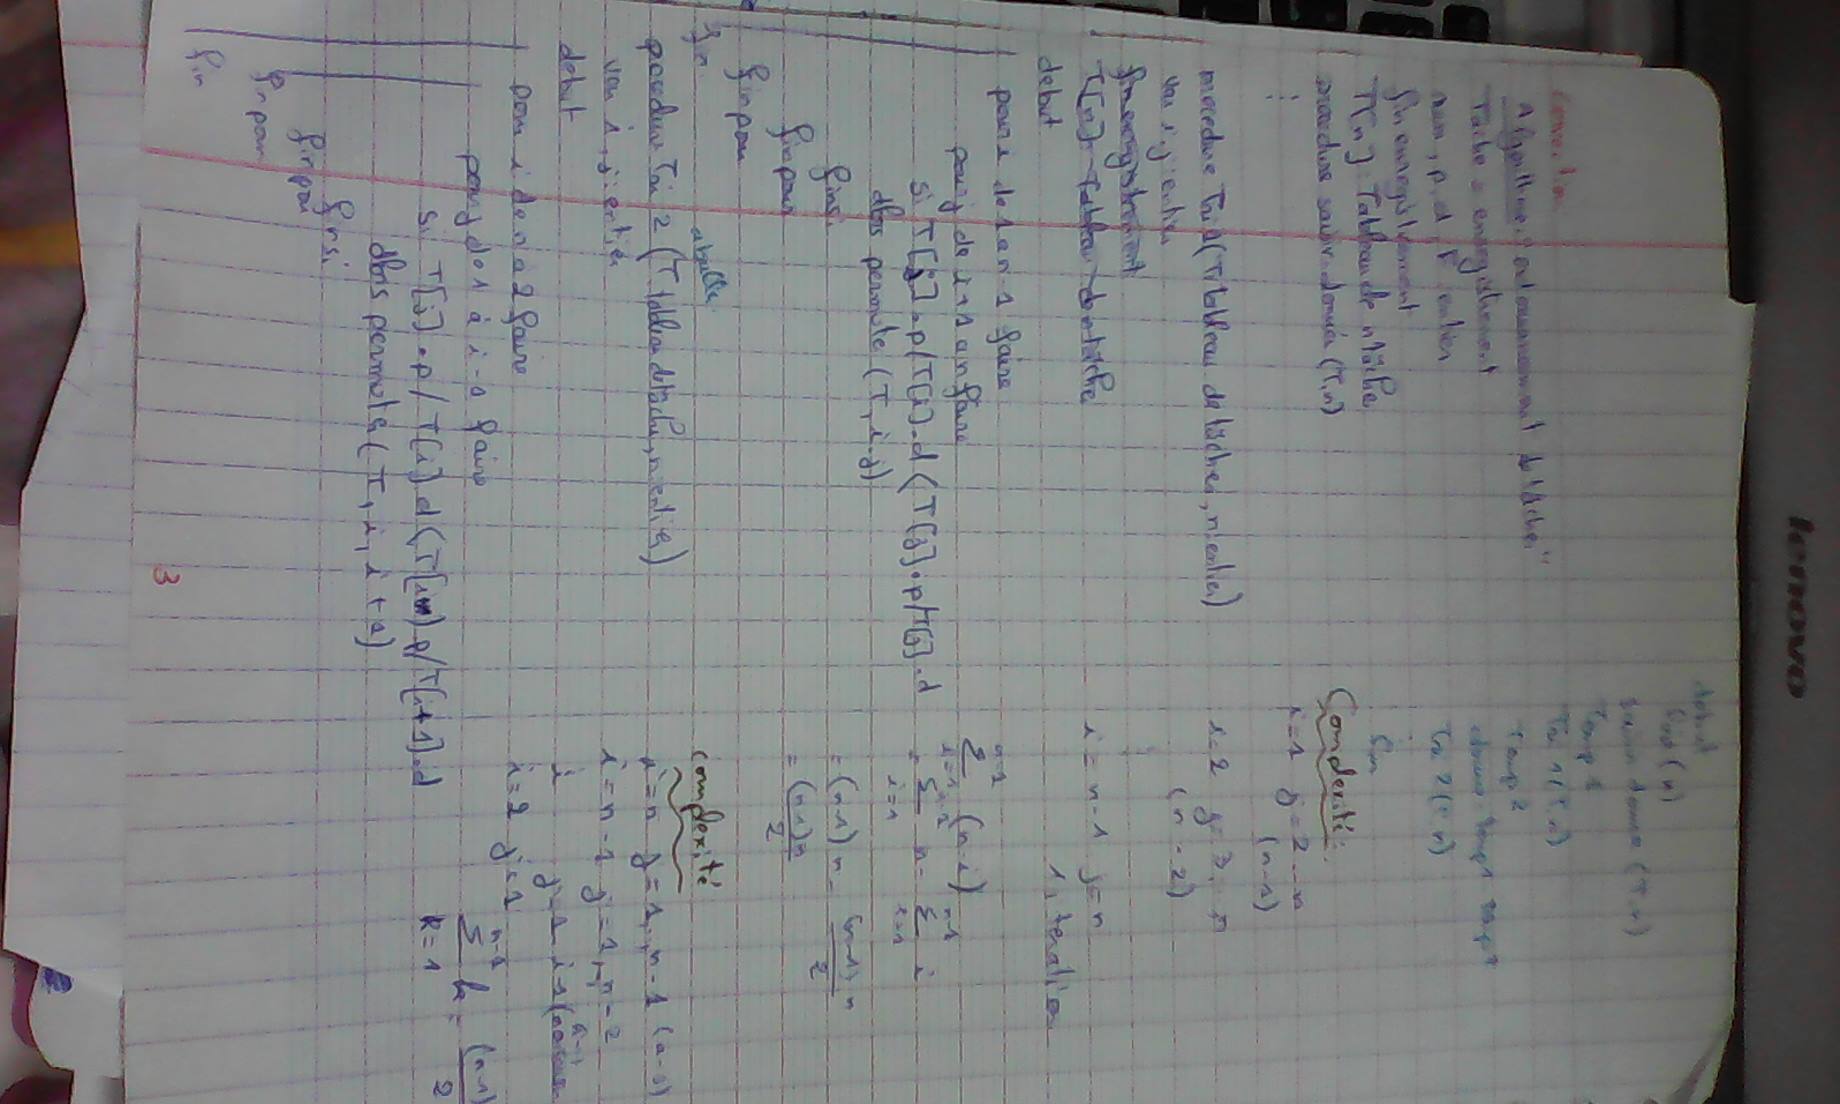 lenovo
Correction
Algorithme "ordonnancement de tâches"
Tâche = enregistrement
num, p, d, F entier
fin enregistrement
T[n] : Tableau de n tâche
procedure saisir donnée (T, n)
⋮
procedure Tri 1 (T: tableau de tâches, n: entier)
var i, j: entier
fin enregistrement
T[n] : Tableau de n tâche
debut
pour i de 1 a n-1 faire
pour j de i+1 a n faire
si T[j].p/T[i].d < T[j].p/T[j].d
alors permute (T, i, j)
finsi
finpour
finpour
fin
a bulle
procedure Tri 2 (T: tableau de tâche, n: entier)
var i, j: entier
debut
pour i de n a 2 faire
pour j de 1 à i-1 faire
si T[j].p/T[i].d < T[i+1].p/T[i+1].d
alors permuter (T, i, i+1)
finsi
finpour
finpour
fin
debut
(n)
saisir donnee (T, n)
Temp 1
Tri 1 (T, n)
Temp 2
Temp1 Temp2
Tri 2 (T, n)
⋮
fin
Complexité:
i=1 j=2...n
(n-1)
i=2 j=3, n
(n-2)
⋮
i = n-1 j=n
1 iteration
n-1
Σ (n-i)
i=1
= Σ n - Σ i
i=1 i=1
= (n-1) n - (n-1) n / 2
= (n-1)n / 2
complexité
i=n j=1,..,n-1 (n-1)
i=n-1 j=1,..,n-2
i j=1 i-1
i=2 j=1
n-1
Σ k = (n-1) / 2
k=1
3